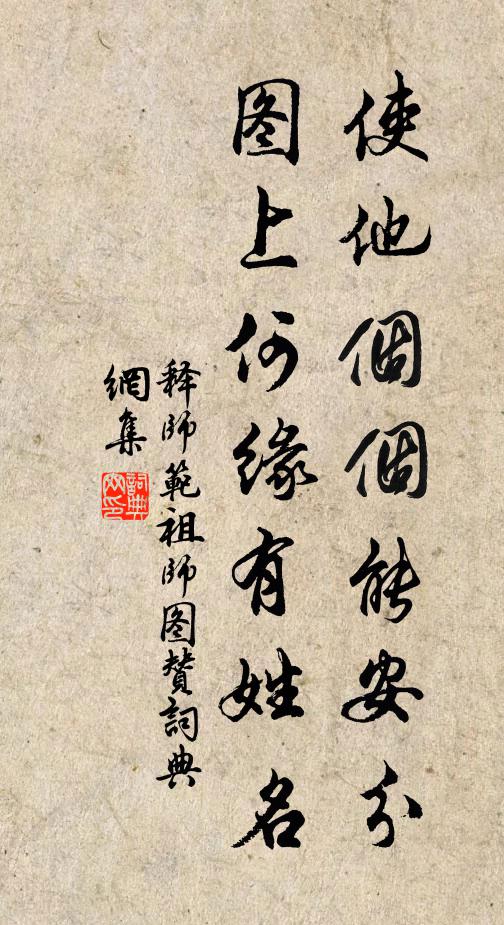 使他個個能安分
图上何緣有姓名
释師範祖師图贊詞典
網集
詞典網印